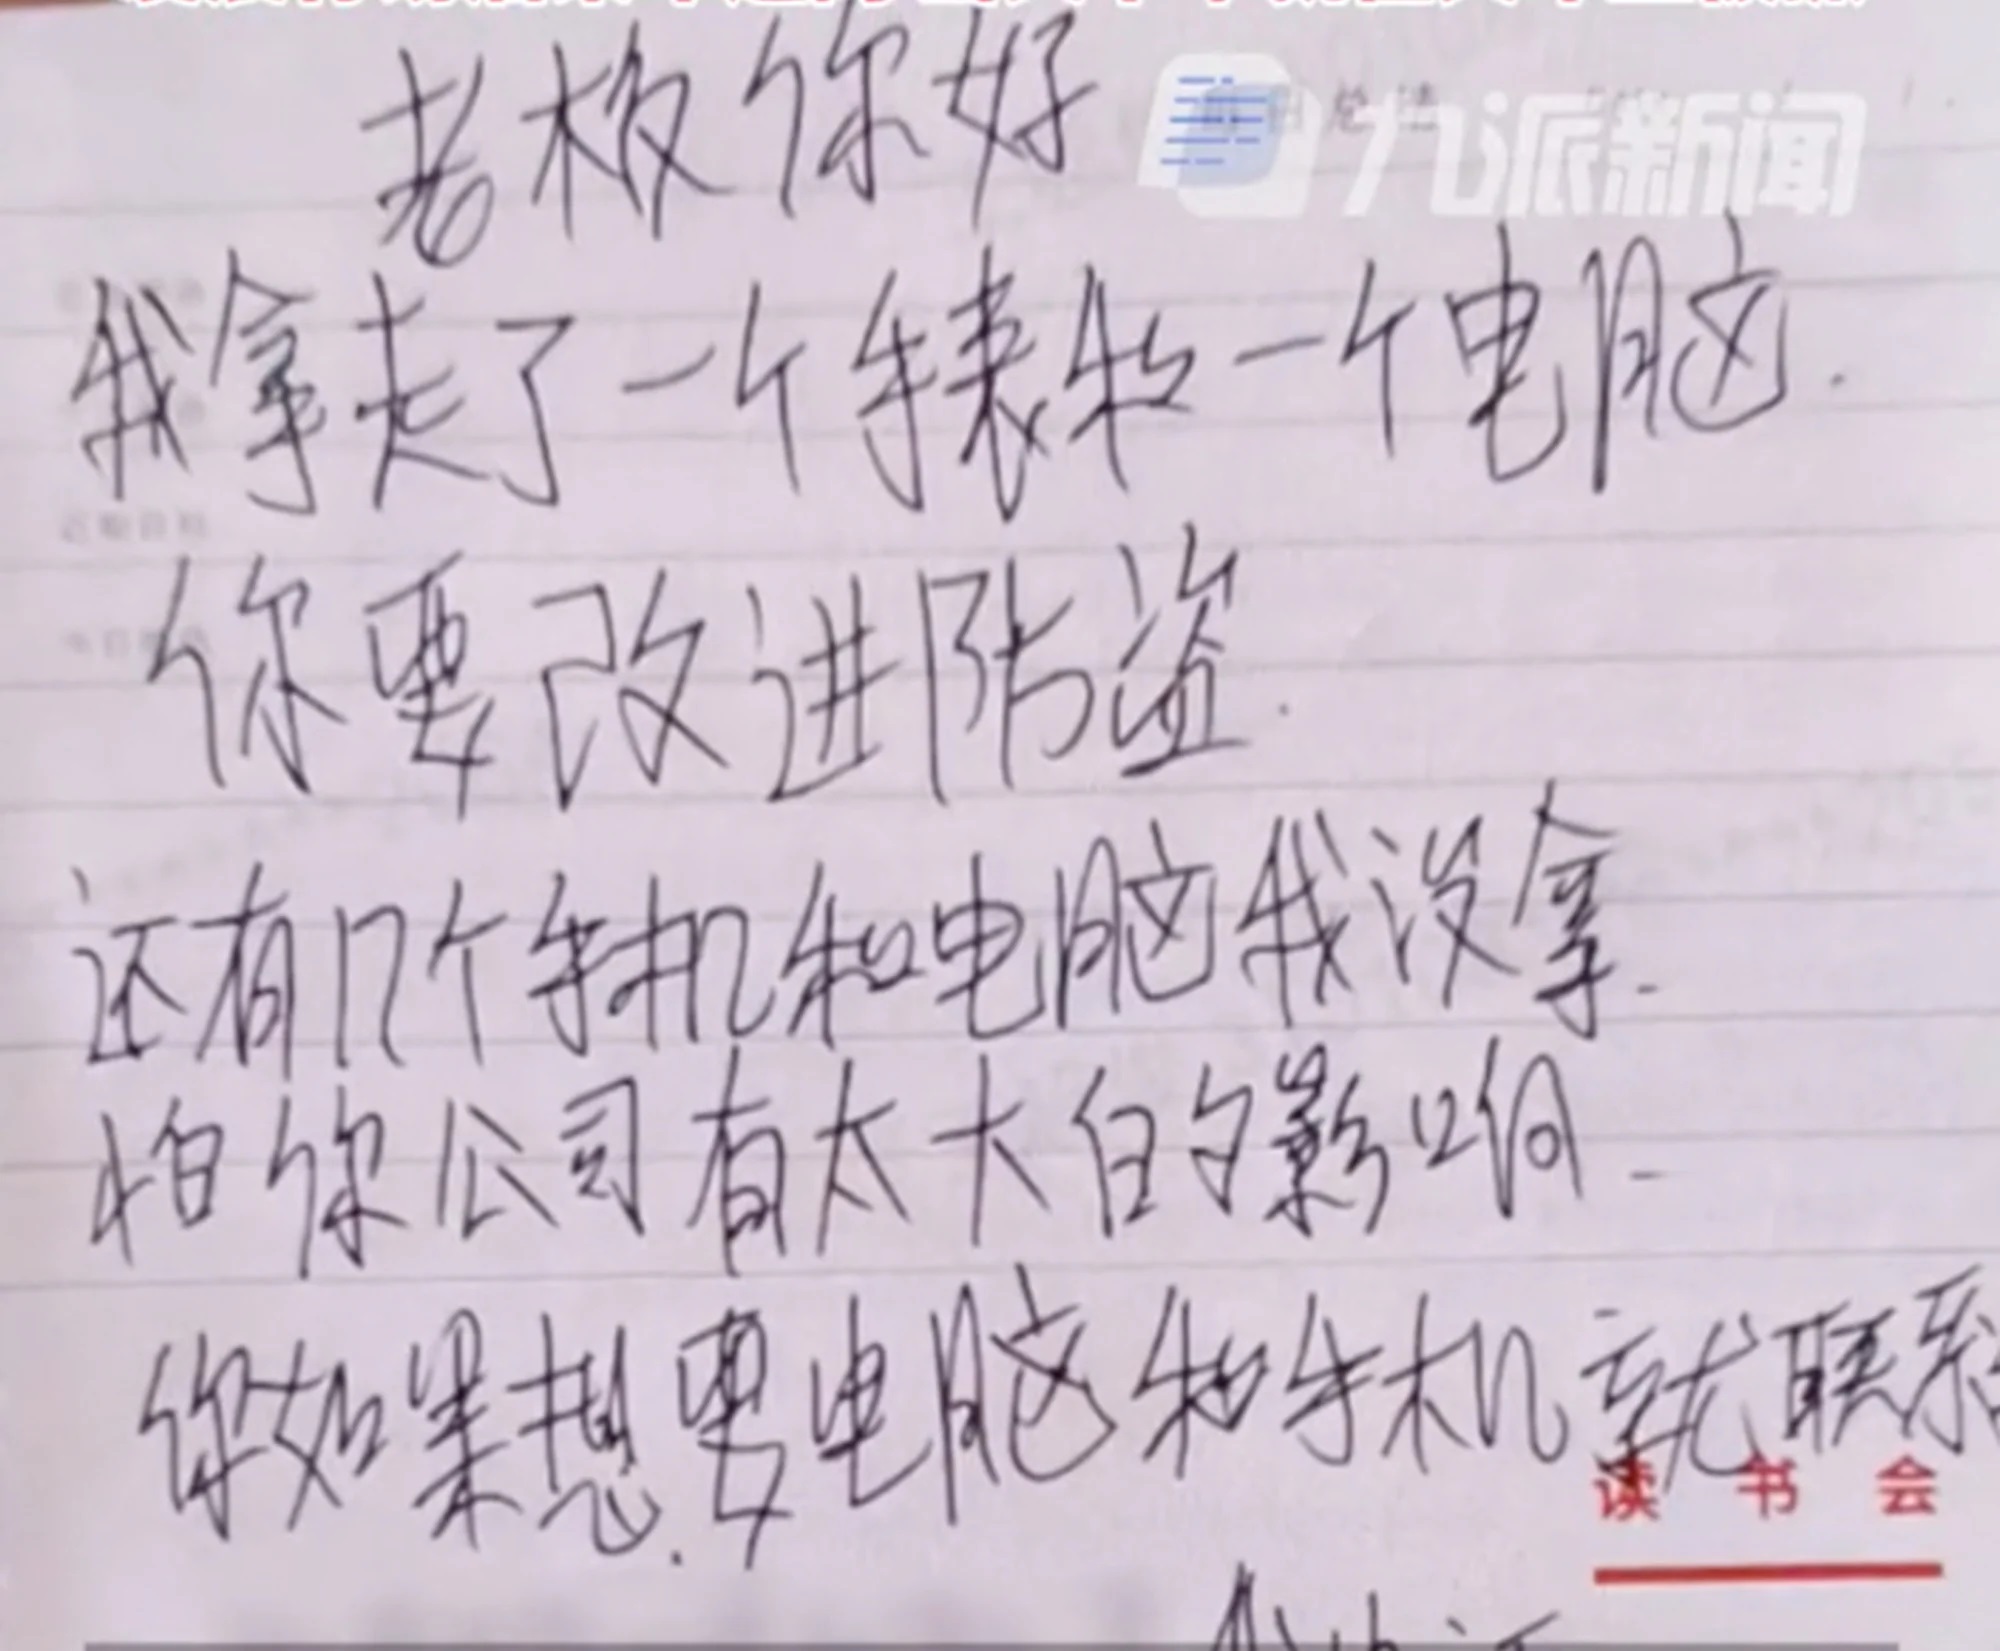 老板你好
九派新闻
我拿走了一个手表和一个电脑.
你要改进防盗.
还有几个手机和电脑我没拿.
怕你公司有太大的影响.
你如果想.要电脑和手机就联系
读书会